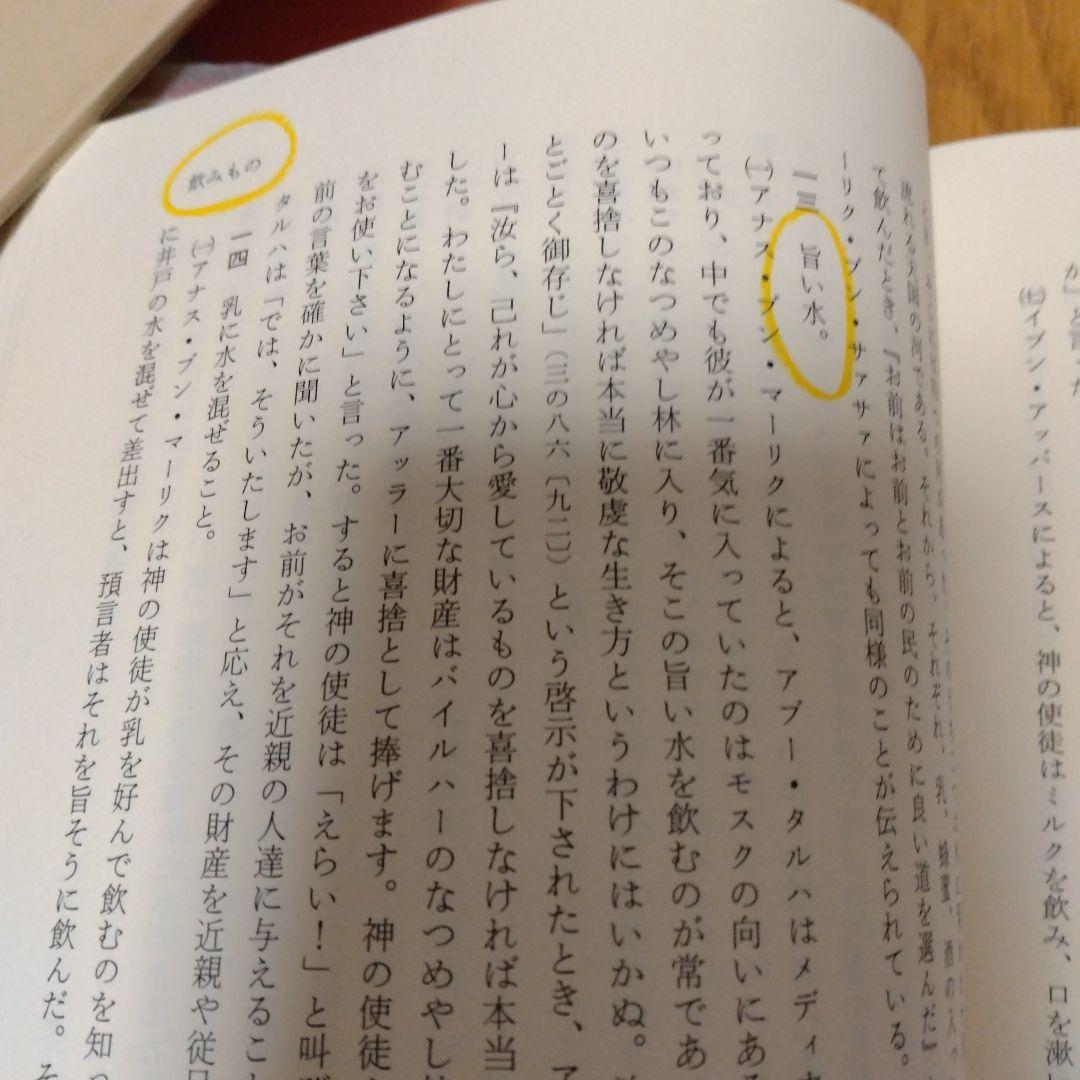 か」と言った
㈦イブン・アッバースによると、神の使徒はミルクを飲み、口を漱
流れる天国の河である。それから、それぞれ、乳、蜂蜜、酒の入っ
て飲んだとき、『お前はお前とお前の民のために良い道を選んだ』
ーリク・ブン・サァサァによっても同様のことが伝えられている。
一三 旨い水。
㈠アナス・ブン・マーリクによると、アブー・タルハはメディ
っており、中でも彼が一番気に入っていたのはモスクの向いにある
いつもこのなつめやし林に入り、そこの旨い水を飲むのが常であ
のを喜捨しなければ本当に敬虔な生き方というわけにはいかぬ。
とごとく御存じ」(三の八六〔九二〕)という啓示が下されたとき、ア
ーは『汝ら、己れが心から愛しているものを喜捨しなければ本当
した。わたしにとって一番大切な財産はバイルハーのなつめやし
むことになるように、アッラーに喜捨として捧げます。神の使徒
をお使い下さい」と言った。すると神の使徒は「えらい!」と叫
前の言葉を確かに聞いたが、お前がそれを近親の人達に与えるこ
タルハは「では、そういたします」と応え、その財産を近親や従
一四 乳に水を混ぜること。
㈠アナス・ブン・マーリクは神の使徒が乳を好んで飲むのを知っ
に井戸の水を混ぜて差出すと、預言者はそれを旨そうに飲んだ。そ
飲みもの